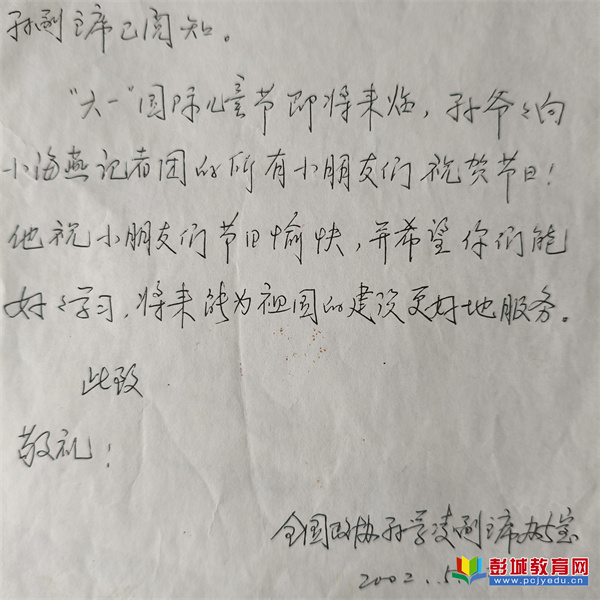 孙副主席已阅知。
"六一"国际儿童节即将来临，孙爷々向
小海燕记者团的所有小朋友们祝贺节日！
他祝小朋友们节日愉快，并希望你们能
好々学习，将来能为祖国的建设更好地服务。
此致
敬礼！
全国政协孙孚凌副主席办公室
2002.5.
彭城教育网
www.pcjyedu.cn